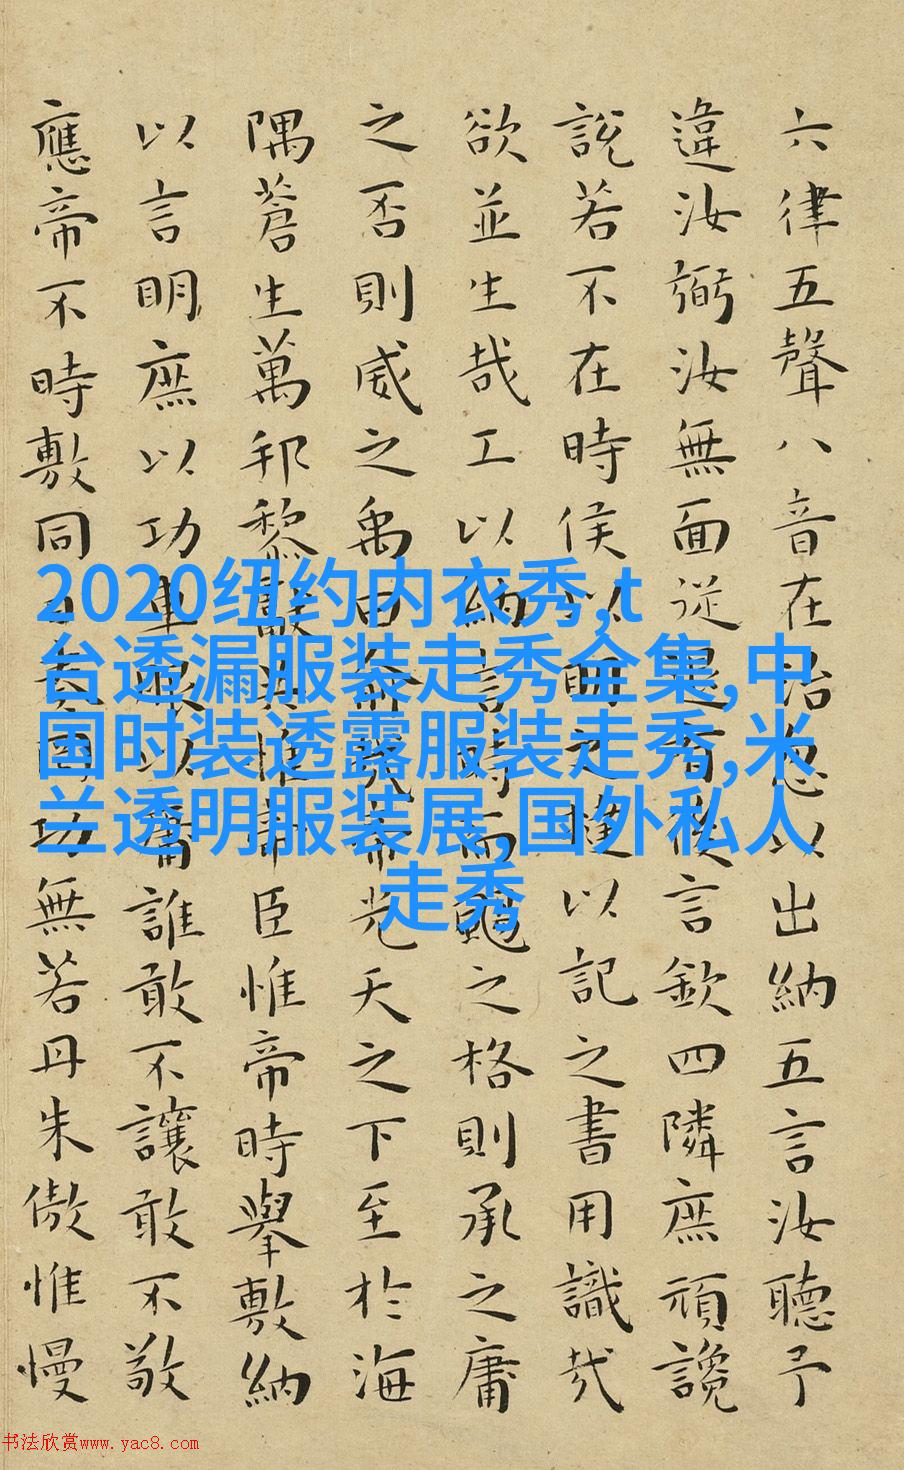 六律五聲八音在治忽以出納五言汝聽予
違汝弼汝無面從退有後言欽四隣庶頑讒
說若不在時侯以明之撻以記之書用識哉
欲並生哉工以納言時而颺之格則承之庸
之否則威之禹曰俞哉帝光天之下至於海
隅蒼生萬邦黎獻共惟帝臣惟帝時舉敷納
以言明庶以功車服以庸誰敢不讓敢不敬
應帝不時敷同日奏罔功無若丹朱傲惟慢
2020纽约内衣秀,t
台透漏服装走秀全集,中
国时装透露服装走秀,米
兰透明服装展,国外私人
走秀
书法欣赏www.yac8.com